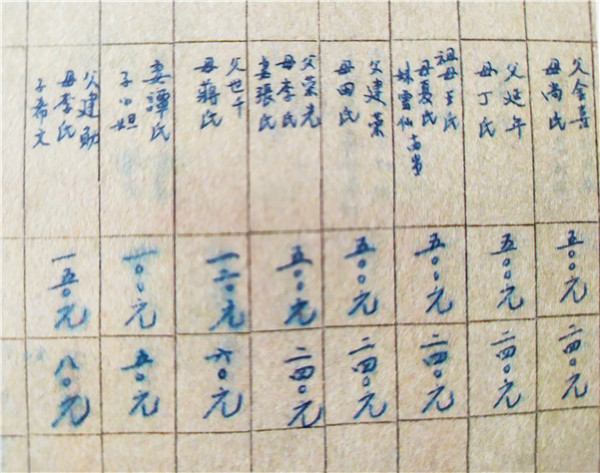 父金
母尚氏
五〇〇元
二四〇元
父延年
母丁氏
五〇〇元
二四〇元
祖母王氏
母夏氏
妹雲仙
五〇〇元
二四〇元
父建業
母田氏
五〇〇元
二四〇元
父榮光
母李氏
妻張氏
五〇〇元
二四〇元
父世
母蔣氏
一二〇元
六〇元
妻譚氏
子小
一〇〇元
五〇元
父建勛
母李氏
子希文
一五〇元
八〇元